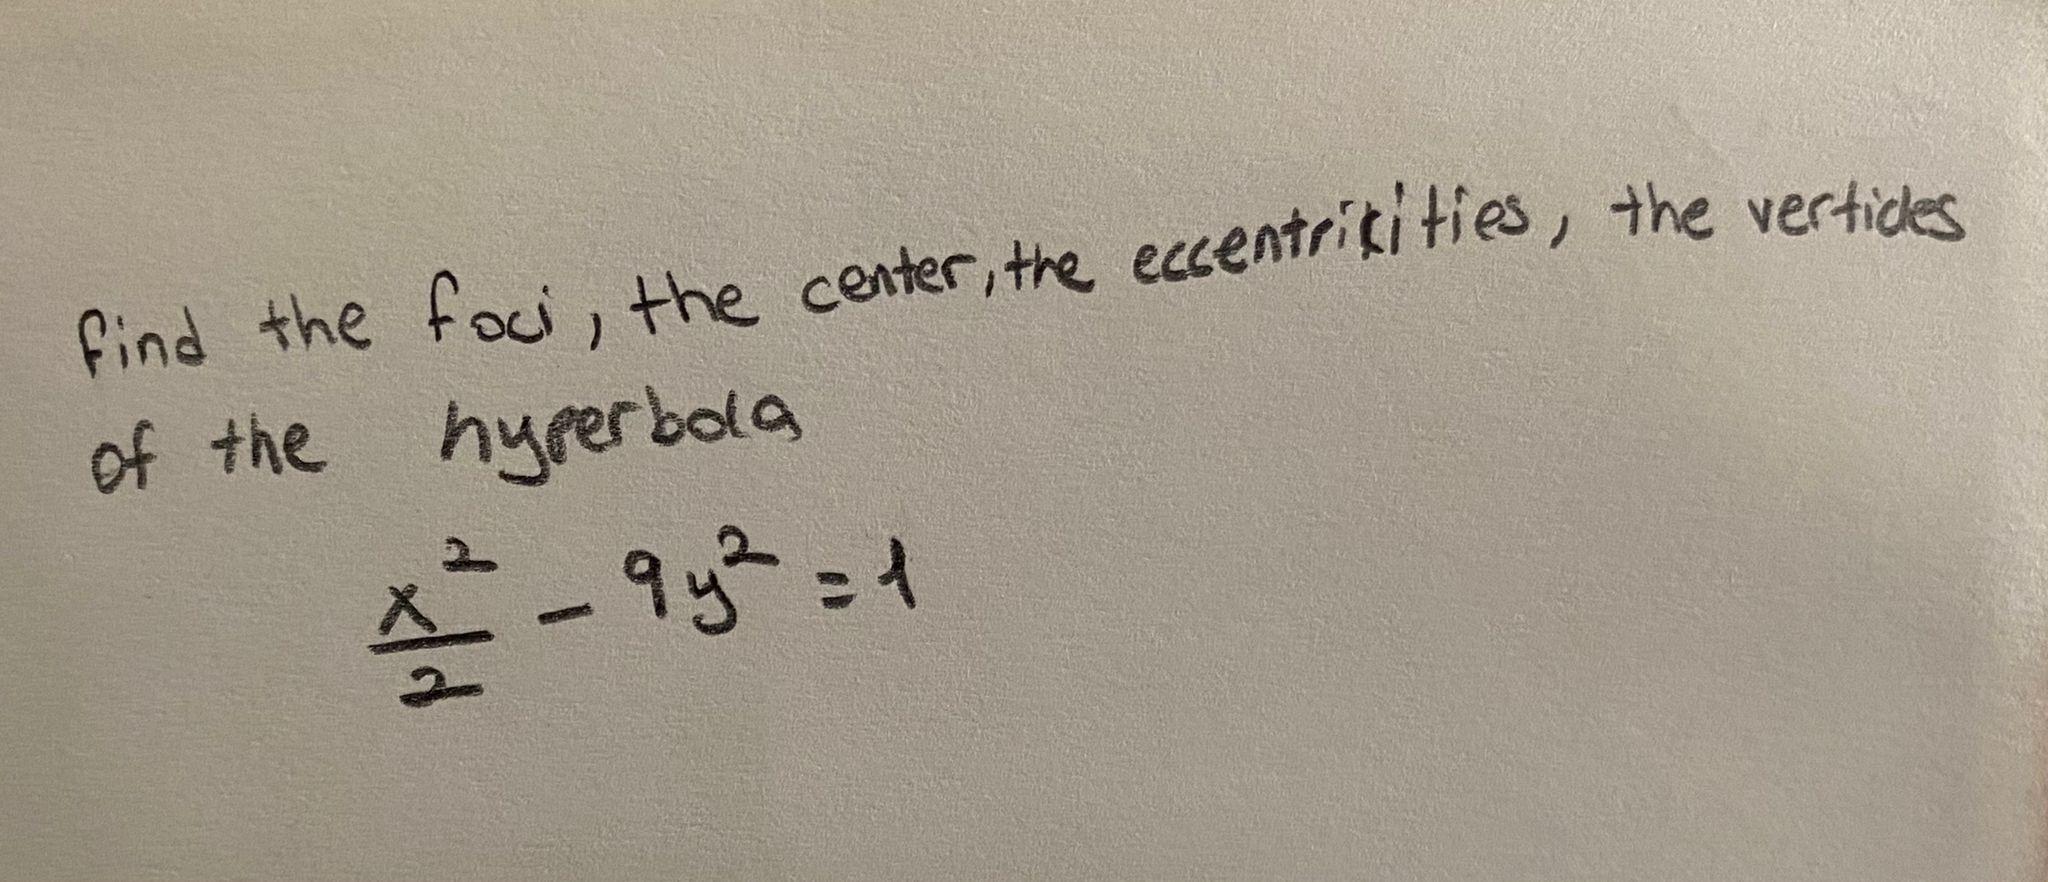 find the foci, the center, the eccentrikities, the verticles
of the hyperbola
x²/2 - 9y² = 1